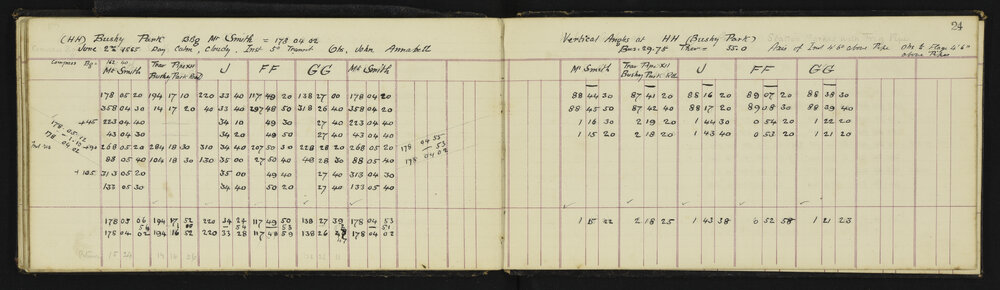 (HH) Bushy Park Bdg Mt Smith = 178 04 02
June 2nd 1865 Day Calm, Cloudy, Inst 5" Transit Obs, John Annabell
Compass Bg=
Mt Smith Trav Pipe XII Bushy Park Rd J FF GG Mt Smith
178 05 20 194 17 10 220 33 40 117 49 20 138 27 00 178 04 20
358 04 30 14 17 20 40 33 40 297 48 50 318 26 40 358 04 30
+45 223 04 40 34 10 49 30 27 40 223 04 40
43 04 30 34 20 49 50 27 40 43 04 40
+90 268 05 20 284 18 30 310 34 40 207 50 30 228 28 20 268 05 20
88 05 40 104 18 30 130 35 00 27 50 40 48 28 30 88 05 40
+135 313 05 20 35 00 49 40 27 40 313 04 30
133 05 30 34 40 50 20 27 40 133 05 40
178 05 12
1.10
178 04 02
178 04 55
53
178 04 02
178 05 06 194 17 52 220 34 24 117 49 50 138 27 39 178 04 53
178 04 02 194 16 52 220 33 28 117 48 59 138 26 178 04 02
24
Vertical Angles at HH (Bushy Park)
Bar: 29.78 Ther = 55.0 Axis of Inst 4'6" above Pipe Obs to Flags 4'6" above Pipes
Mt Smith Trav Pipe XII Bushy Park Rd J FF GG
88 44 30 87 41 20 88 16 20 89 07 20 88 38 30
88 45 50 87 42 40 88 17 20 89 08 30 88 39 40
1 16 30 2 19 20 1 44 30 0 54 20 1 22 20
1 15 20 2 18 20 1 43 40 0 53 20 1 21 20
1 15 22 2 18 25 1 43 38 0 52 58 1 21 23